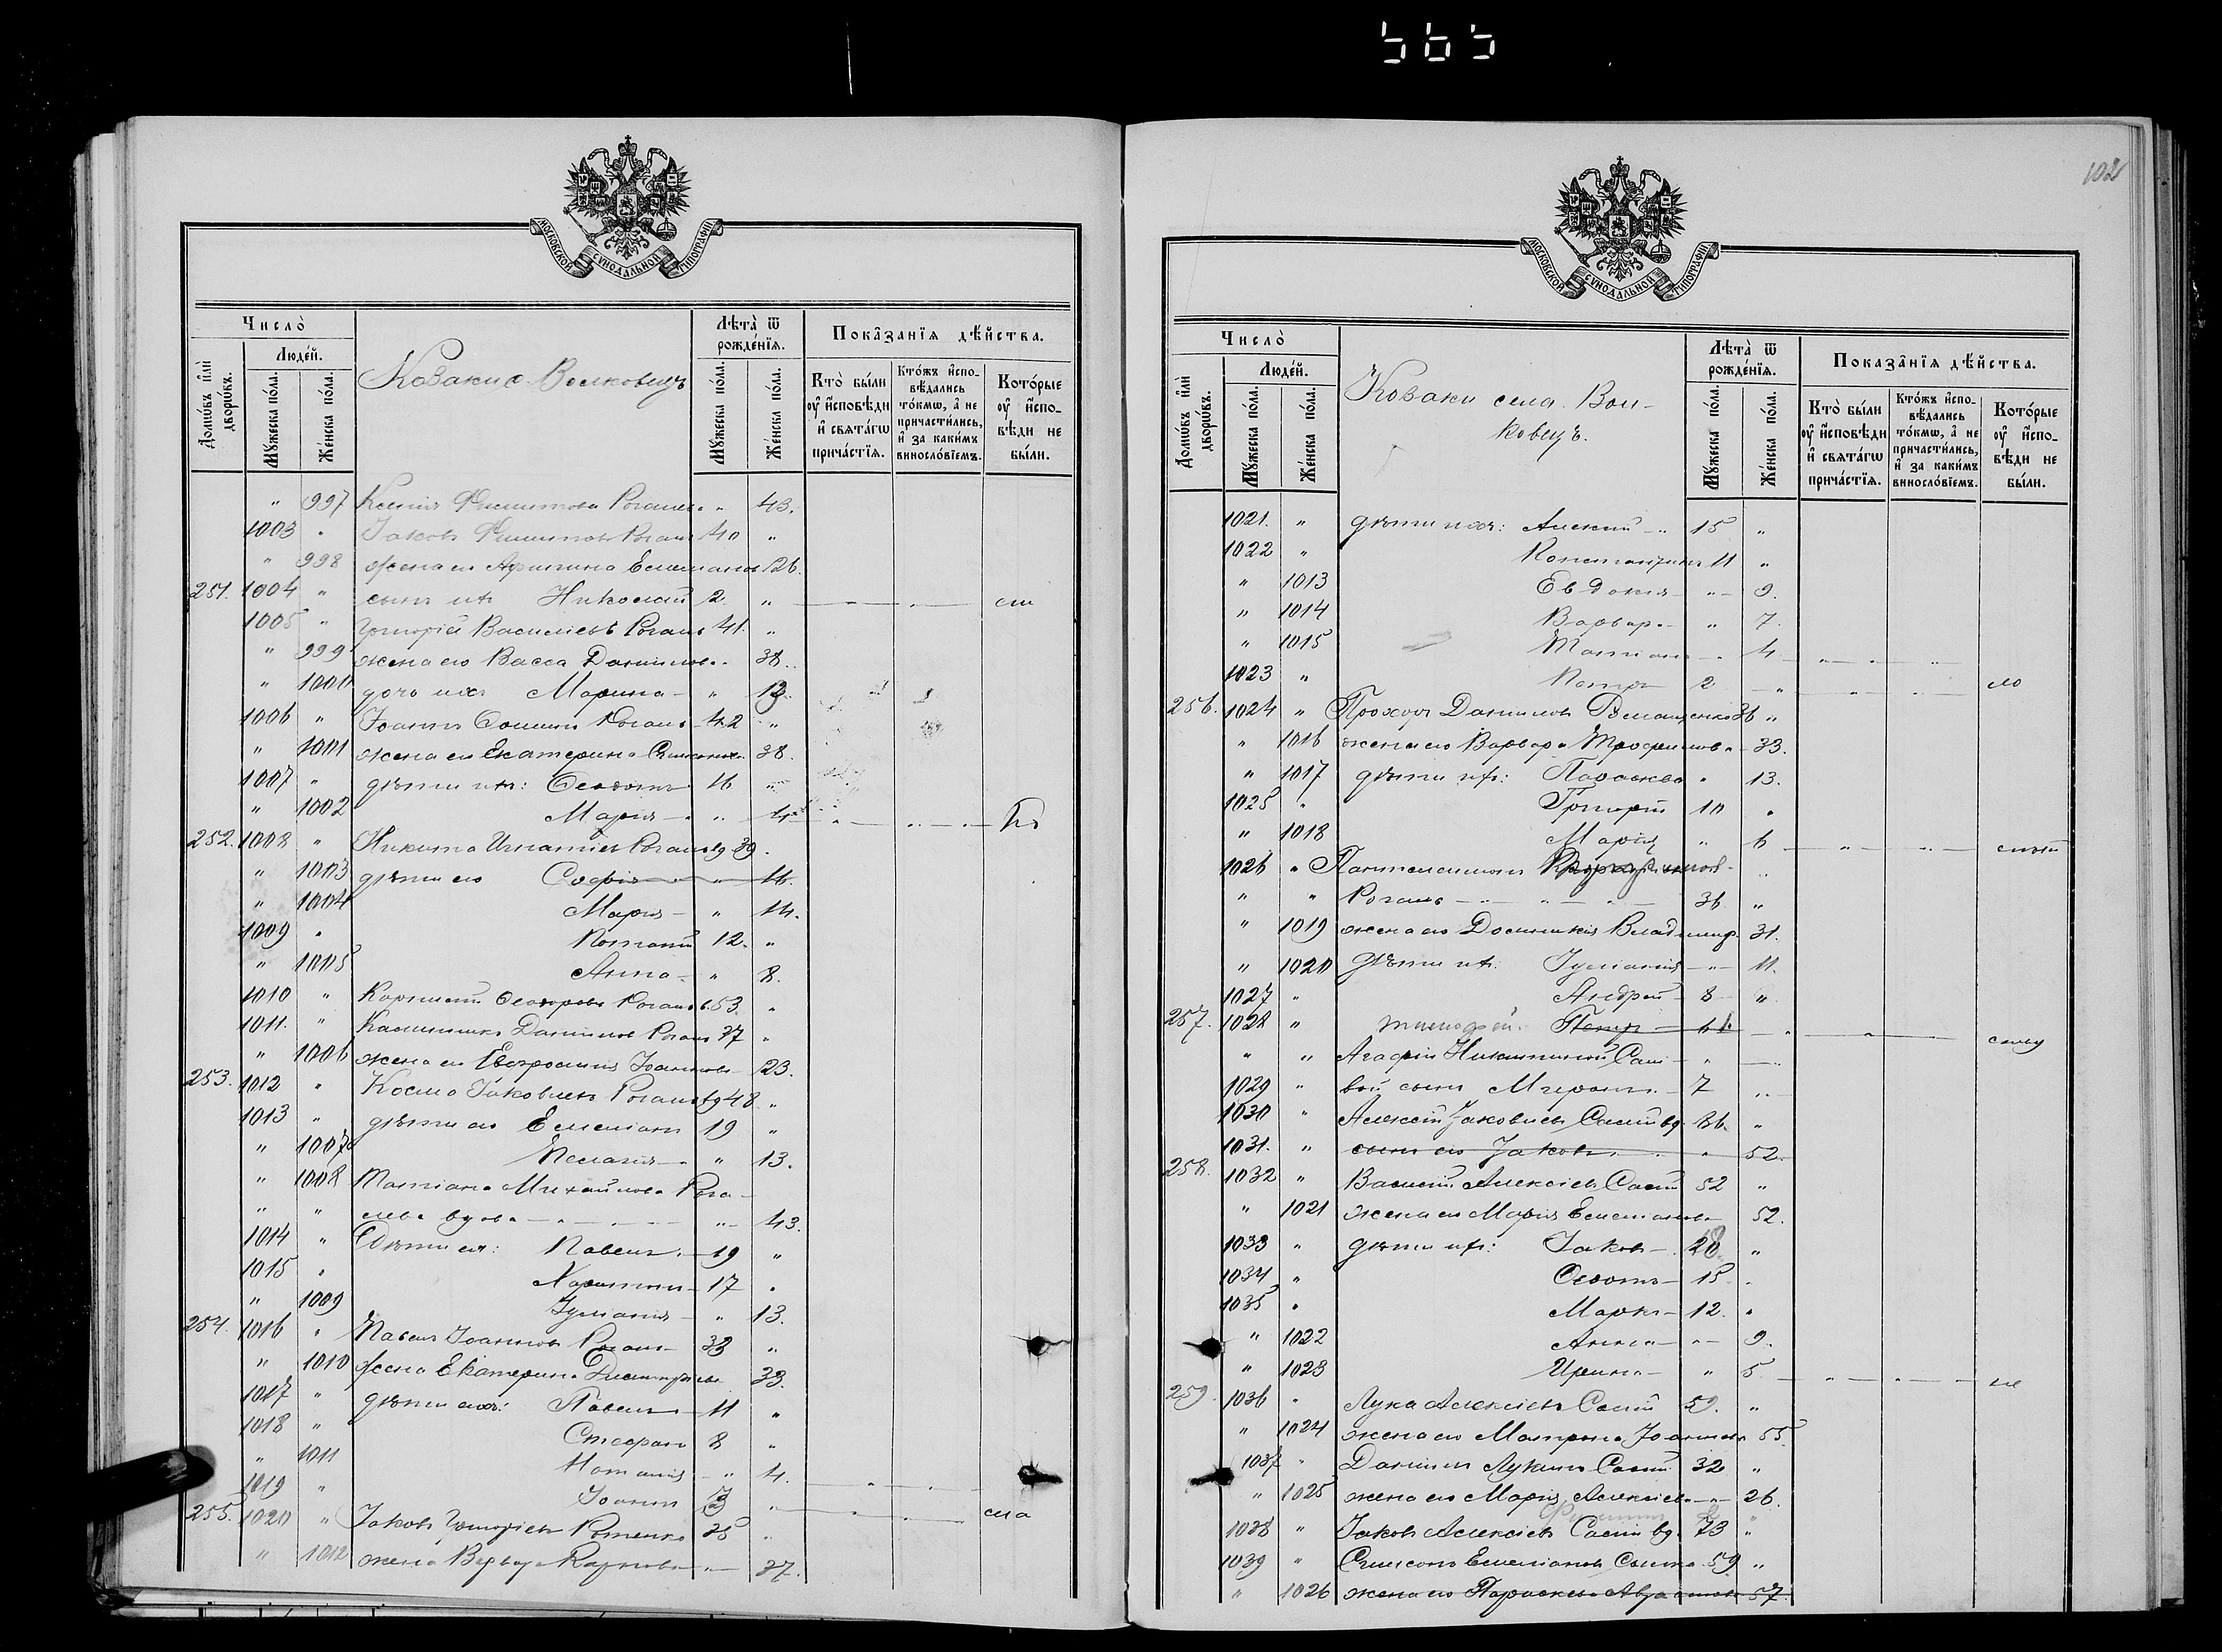 565
МОСКОВСКОЙ СѴНОДАЛЬНОЙ ТИПОГРАФІИ
Число̀
Людéй.
Домѡ́въ и҆лѝ дворѡ́въ.
Мꙋ́жеска по́ла.
Же́нска по́ла.
Козаки с. Волковецъ
Лѣта̀ ѿ рожде́нїѧ.
Мꙋ́жеска по́ла.
Же́нска по́ла.
Показа̑нїѧ дѣ́йства.
Кто̀ бы́ли ᲂу҆ и҆сповѣди и҆ свѧта́гѡ прича́стїѧ.
Кто́жъ и҆спо-вѣ́дались то́кмѡ, а҆ не причасти́лись, и҆ за каки́мъ винослóвїемъ.
Кото́рые ᲂу҆ и҆спо-вѣди не бы́ли.
" 997 Ксенія Филиппова " 43.
1003 " Іаковъ Филипповъ Рогаль 40 "
" 998 жена его Агрипина Емелианов 26.
251. 1004 " сынъ ихъ Николай 2 "
1005 " Григорій Василіевъ Рогаль 41. "
" 999 жена его Васса Данилова 38.
" 1000 дочь ихъ Марина " 13.
1006 " Іоаннъ Рогаль 42 "
" 1001 жена его Екатерина 38.
1007 " дѣти ихъ: Ѳеодотъ 16 "
" 1002 Марія " 4
252. 1008 " Никита Игнатіевъ Рогаль вд 39.
" 1003 дѣти его Софія " 16.
" 1004 Марія " 14.
1009 " Потапій 12. "
" 1005 Анна " 8.
1010 " Корнилій Ѳеодоровъ Рогаль в. 53. "
1011. " Каллиникъ Даниловъ Рогаль 37 "
" 1006 жена его Евфросинія Іоаннова 23.
253. 1012 " Косма Іаковлевъ Рогаль вд 48 "
1013 " дѣти его Емеліанъ 19 "
" 1007 Пелагія " 13.
" 1008 Татіана Михайлова Рога-
" " лева вдова " 43.
1014 " Дѣти ея: Павелъ 19 "
1015 " Харитонъ 17 "
" 1009 Іуліанія " 13.
254. 1016 " Павелъ Іоанновъ Рогаль 33 "
" 1010 жена Екатерина Димитріева 33.
1017 " дѣти ихъ: Павелъ 11 "
1018 " Стефанъ 8 "
" 1011 Наталія " 4.
1019 " Іоаннъ 3 "
255. 1020 " Іаковъ Григоріевъ 35 "
" 1012 жена Варвара Карпова " 37.
102
МОСКОВСКОЙ СѴНОДАЛЬНОЙ ТИПОГРАФІИ
Число̀
Людéй.
Домѡ́въ и҆лѝ дворѡ́въ.
Мꙋ́жеска по́ла.
Же́нска по́ла.
Козаки села Вол-
ковецъ.
Лѣта̀ ѿ рожде́нїѧ.
Мꙋ́жеска по́ла.
Же́нска по́ла.
Показа̑нїѧ дѣ́йства.
Кто̀ бы́ли ᲂу҆ и҆сповѣди и҆ свѧта́гѡ прича́стїѧ.
Кто́жъ и҆спо-вѣ́дались то́кмѡ, а҆ не причасти́лись, и҆ за каки́мъ винослóвїемъ.
Кото́рые ᲂу҆ и҆спо-вѣди не бы́ли.
1021. " дѣти ихъ: Алексій 15 "
1022 " Константинъ 11 "
" 1013 Евдокія " 9.
" 1014 Варвара " 7.
" 1015 Татіана " 4
1023 " Петръ 2 "
256. 1024 " Прохоръ Даниловъ 36 "
" 1016 жена его Варвара Трофимова 33.
" 1017 дѣти ихъ: Параскева " 13.
1025 " Григорій 10 "
" 1018 Марія " 6
1026 " Пантелеимонъ "
" " Рогаль 36 "
" 1019 жена его Домникія Владимір. 31.
" 1020 Дѣти ихъ: Іуліанія " 11.
1027 " Андрей 8 "
257. 1028 " Тимофей Петръ 6
" " Агафіи Никитиной Сам "
1029 " вой сынъ 7 "
1030 " Алексій Іаковлевъ вд. 86. "
1031. " сынъ его Іаковъ " 52.
258. 1032 " Василій Алексіевъ 52 "
" 1021 жена его Марія Емеліанова 52.
1033 " дѣти ихъ: Іаковъ 28 "
1034 " Ѳеодотъ 15 "
1035 " Маркъ 12. "
" 1022 Анна " 9.
" 1023 Ирина " 5
259. 1036 " Лука Алексіевъ 59. "
" 1024 жена его Матрона Іоаннова 55.
1037 " Даніилъ Лукинъ 32 "
" 1025 жена его Марія Алексіева " 26.
1038 " Іаковъ Алексіевъ вд. 73 "
1039 " Симеонъ Емеліановъ 59 "
" 1026 жена его Параскева 57.